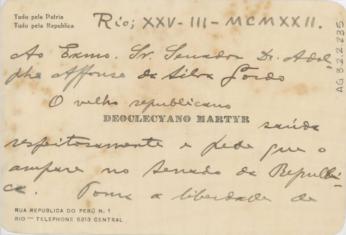 Tudo pela Patria
Tudo pela Republica
Rio, XXV-III-MCMXXII.
Ao Exmo. Sr. Senador Dr. Adol-
pho Affonso da Silva Gordo
O velho republicano
DEOCLECYANO MARTYR
saúda
respeitosamente e pede que o
ampare no Senado da Republi-
ca. Toma a liberdade de
RUA REPUBLICA DO PERÚ N. 1
RIO — TELEPHONE 5213 CENTRAL
AG 3.2.2.235